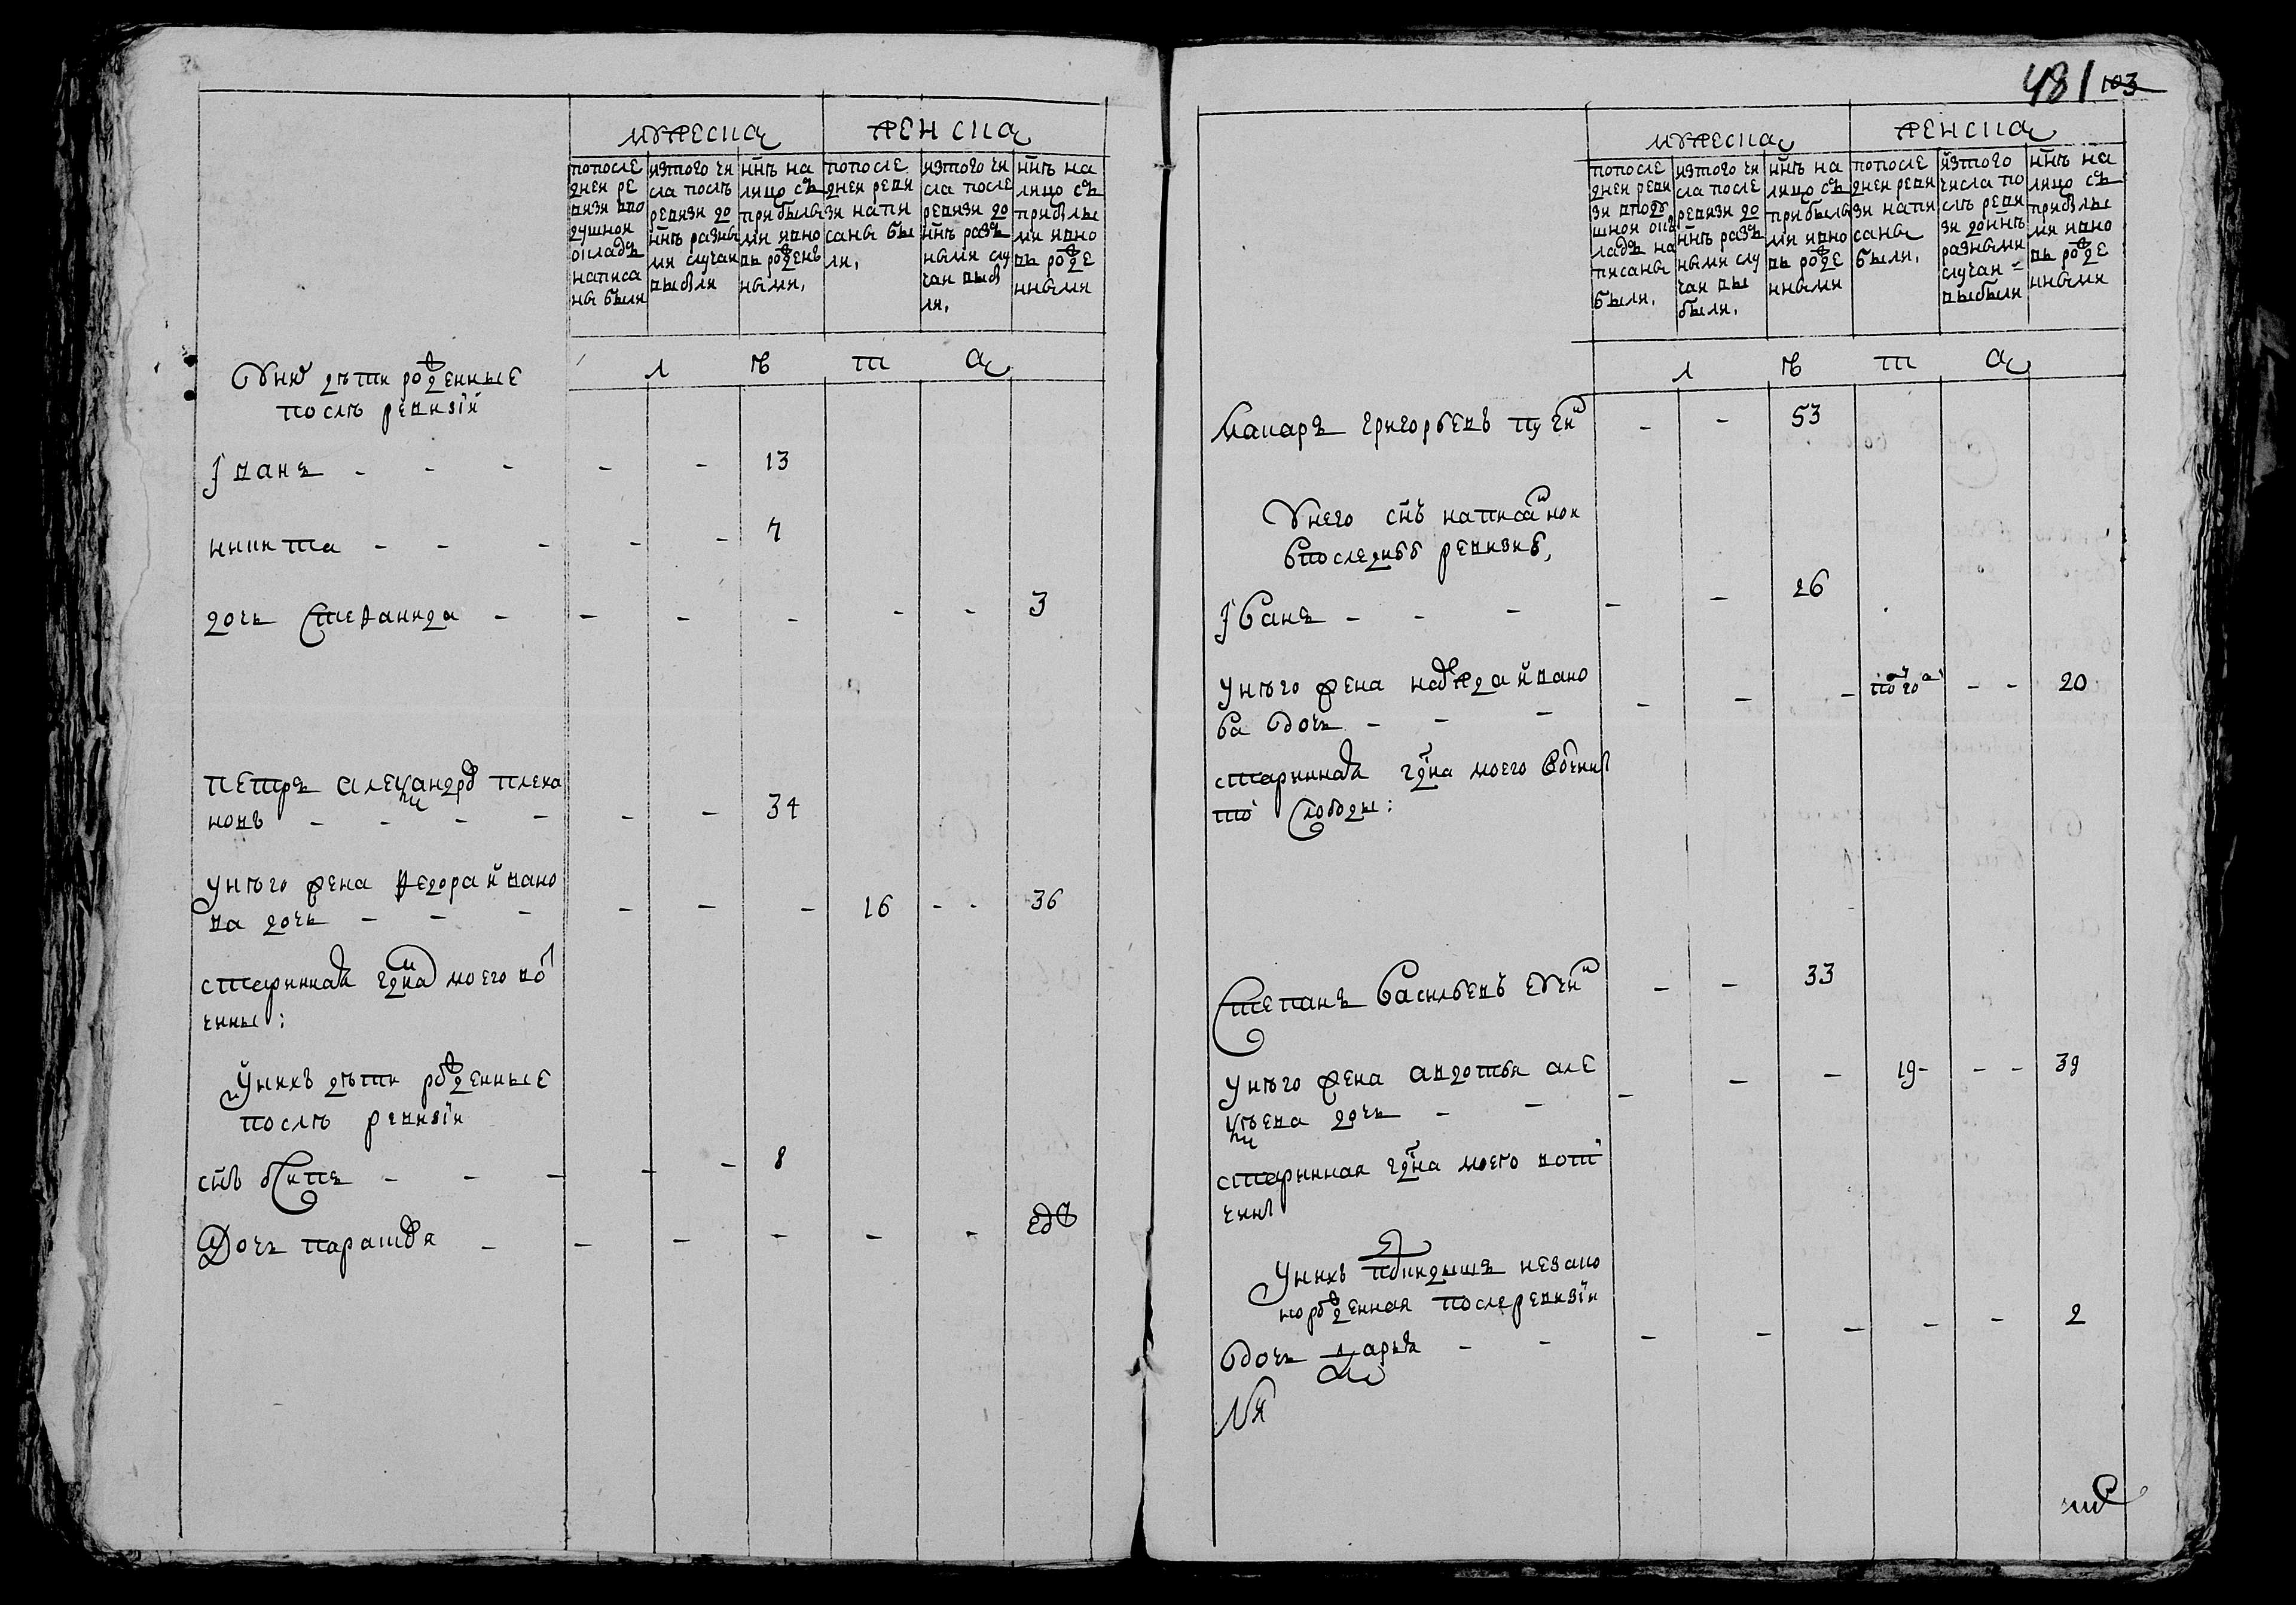 481 103
мужеска
женска
попосле
дней ре
визи впо
душной
окладъ
написа
ны были
изтого чи
сла послѣ
ревизи до
ннѣ разны
ми случаи
выбыли
ннѣ на
лицо съ
прибылы
ми ивно
вь рожденъ
ными,
попосле
дней реви
зи напи
саны бы
ли,
изтого чи
сла после
ревизи до
ннѣ разъ
ными слу
чаи выб
ли,
ннѣ на
лицо съ
прибылы
ми ивно
вь рожде
нными
л ѣ т а
Униx дѣти рожденные
послѣ ревизiи
Iванъ - - - - - 13
никита - - - - - 7
дочь Стефанида - - - - - - 3
петръ александр плеха
новъ - - - - - - 34
унѣго жена федора ивано
ва дочь - - - - - - 16 - - 36
старинная гдна моего во
чины:
унихъ дѣти рожденные
послѣ ревизiи
снъ - - - - - 8
Дочь парасковя - - - - - -
мужеска
женска
попосле
дней реви
зи вподу
шной окла
ладъ на
писаны
были,
изтого чи
сла после
ревизи до
ннѣ разъ
ными слу
чаи вы
были,
ннѣ на
лицо съ
прибылы
ми ивно
вь рожде
нными
попосле
дней реви
зи напи
саны
были,
изтого
числа по
слѣ реви
зи доннѣ
разными
случаи =
выбыли
ннѣ на
лицо съ
прибылы
ми ивно
вь рожде
нными
л ѣ т а
Макаръ григорьевъ - - 53
Унего снъ написанои
впоследнѣ ревизиѣ,
Iванъ - - - - - 26
унѣго жена надежда ивано
ва дочь - - - - - - - - 20
стариннаѧ гдна моего вочин
тои слободы:
Степанъ васильевъ - - 33
унѣго жена авдотья але
ѣева дочь - - - - - 19 - - - 39
стариннаѧ гдна моего вот
чины
Унихъ незапо
норожденная послеревизiи
дочь дарья - - - - - - - 2